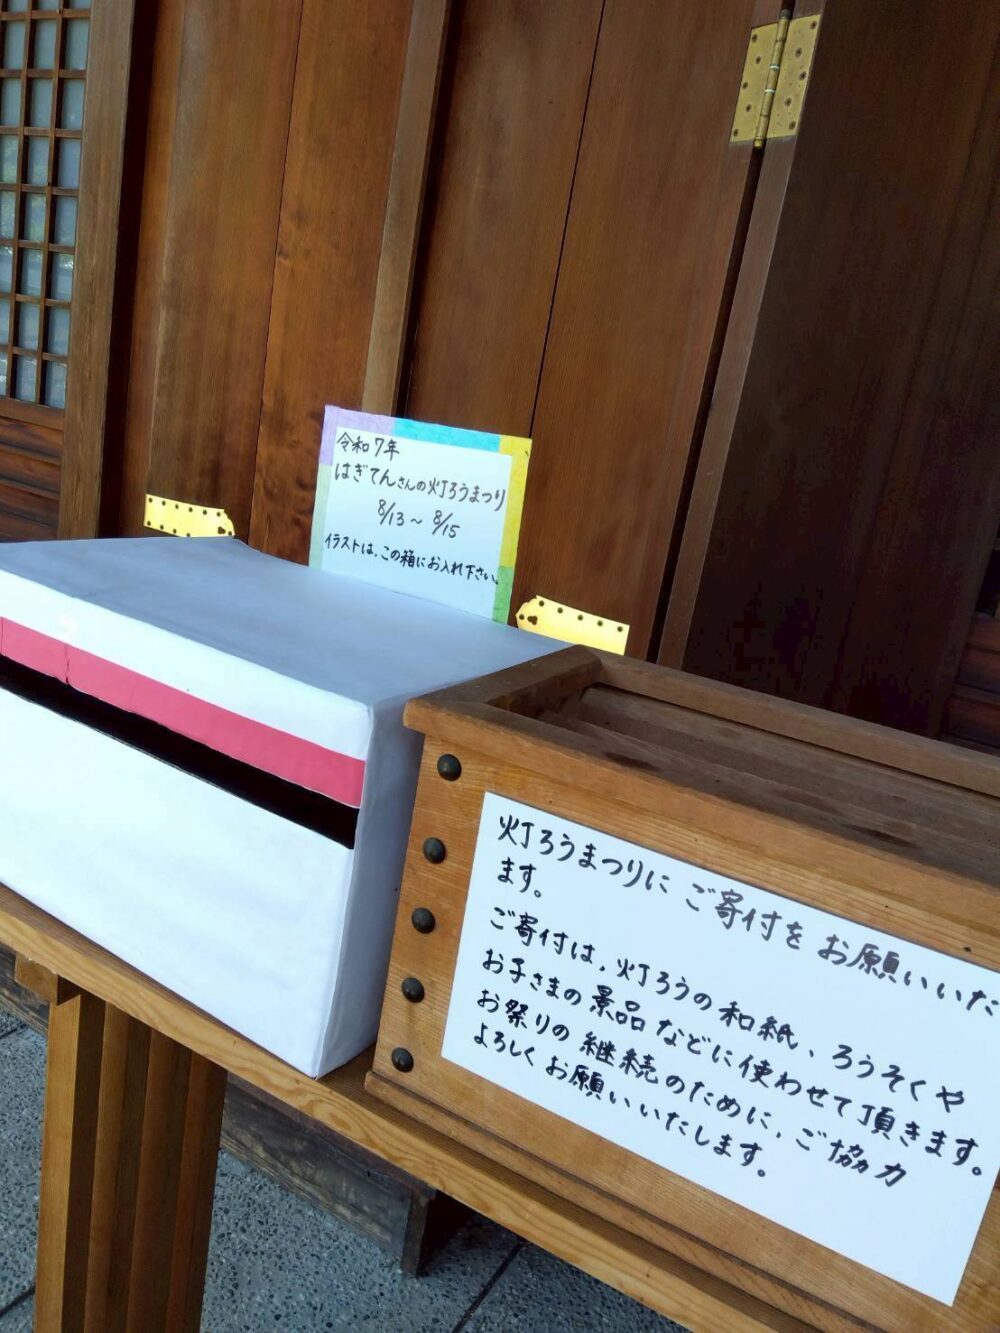 令和7年
はぎてんさんの灯ろうまつり
8/13～8/15
イラストは、この箱にお入れ下さい。
灯ろうまつりに ご寄付を お願いいた
ます。
ご寄付は、灯ろうの和紙、ろうそくや
お子さまの景品などに使わせて頂きます。
お祭りの継続のために、ご協力
よろしくお願いいたします。